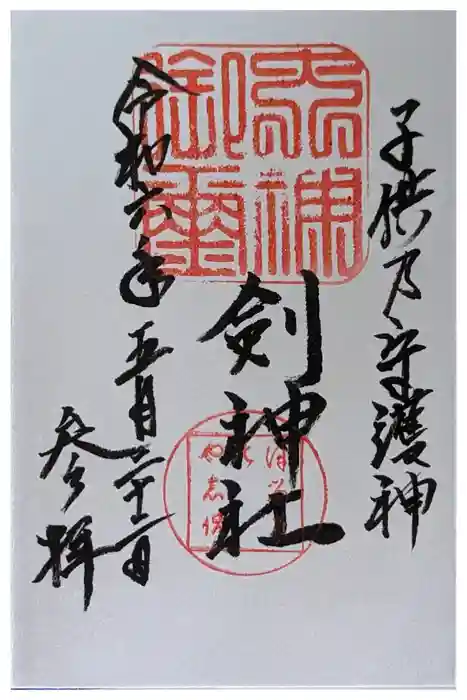 子供乃守護神
剣神社
令和六年五月二十二日
参拝